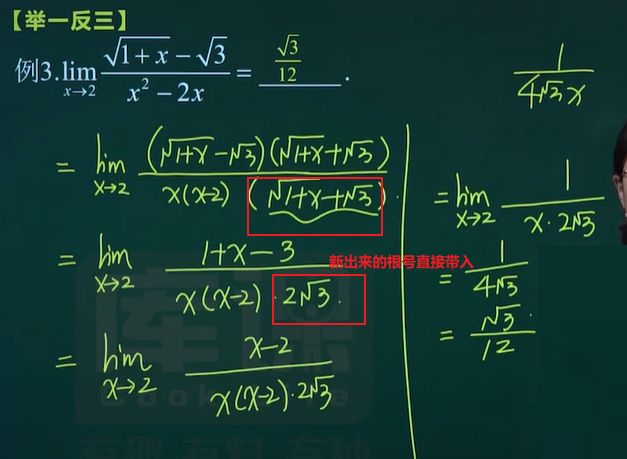 【举一反三】
例3. lim x→2 (√(1+x) − √3) / (x² − 2x) = √3/12 .
1 / (4√3 x)
= lim x→2 (√(1+x) − √3)(√(1+x) + √3) / x(x−2) (√(1+x) + √3) .
= lim x→2 (1+x−3) / x(x−2) · 2√3 .
新出来的根号直接带入
= lim x→2 (x−2) / x(x−2) · 2√3
= lim x→2 1 / (x · 2√3)
= 1 / (4√3)
= √3 / 12 .